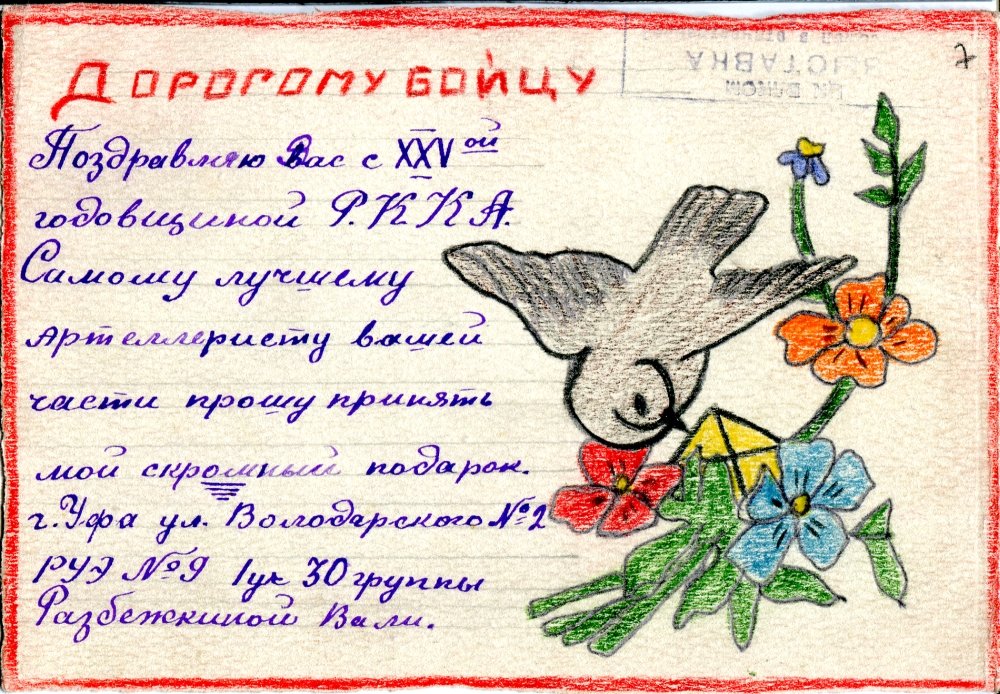 7
ДОРОГОМУ БОЙЦУ
Поздравляю Вас с XXV ой
годовщиной Р.К К А.
Самому лучшему
артеллеристу вашей
части прошу принять
мой скромный подарок.
г. Уфа ул. Володарского №2
РУЭ №9 1 ук 30 группы
Разбежкиной Вали.
ВЫСТАВКА
ЦК ВЛКСМ